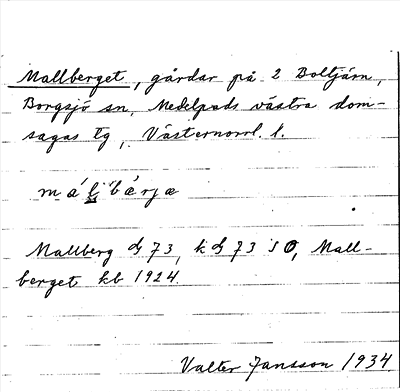 Mallberget, gårdar på 2 Boltjärn,
Borgsjö sn, Medelpads västra dom-
sagas tg, Västernorrl. l.
máḷ`bärjæ
Mallberg db 73, kdb 73 s 0, Mall-
berget kb 1924.
Valter Jansson 1934.